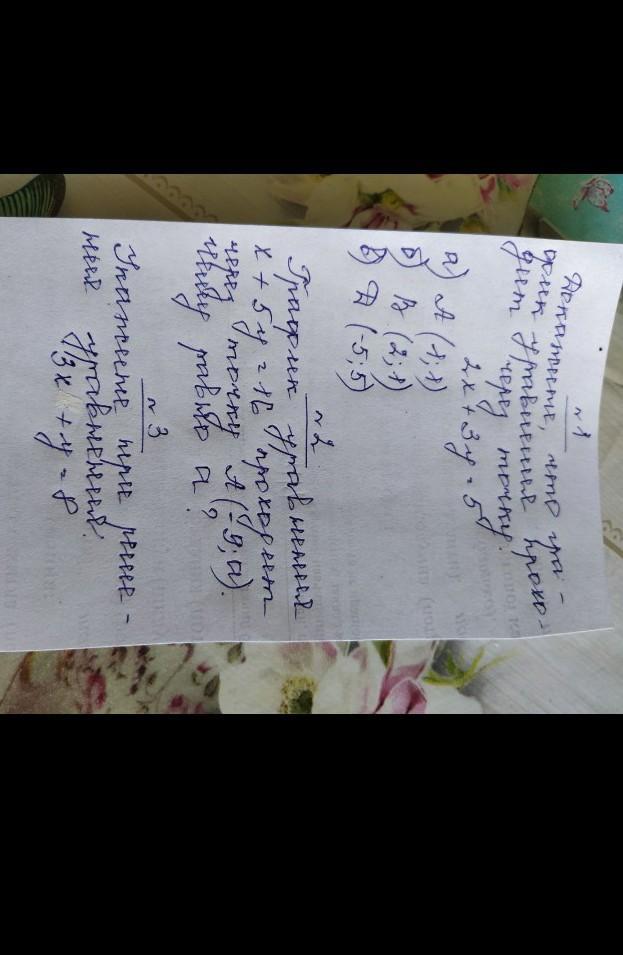 №1
Докажите, что гра-
фик уравнения прохо-
дит через точку.
2x + 3y = 5
а) А (1; 1)
б) В (2; 1)
в) Д (-5; 5)
№2
График уравнения
x + 5y = 16 проходит
через точку А (-9; а)
чему равно а?
№3
Укажите пару реше-
ние уравнений.
3x + y = 8